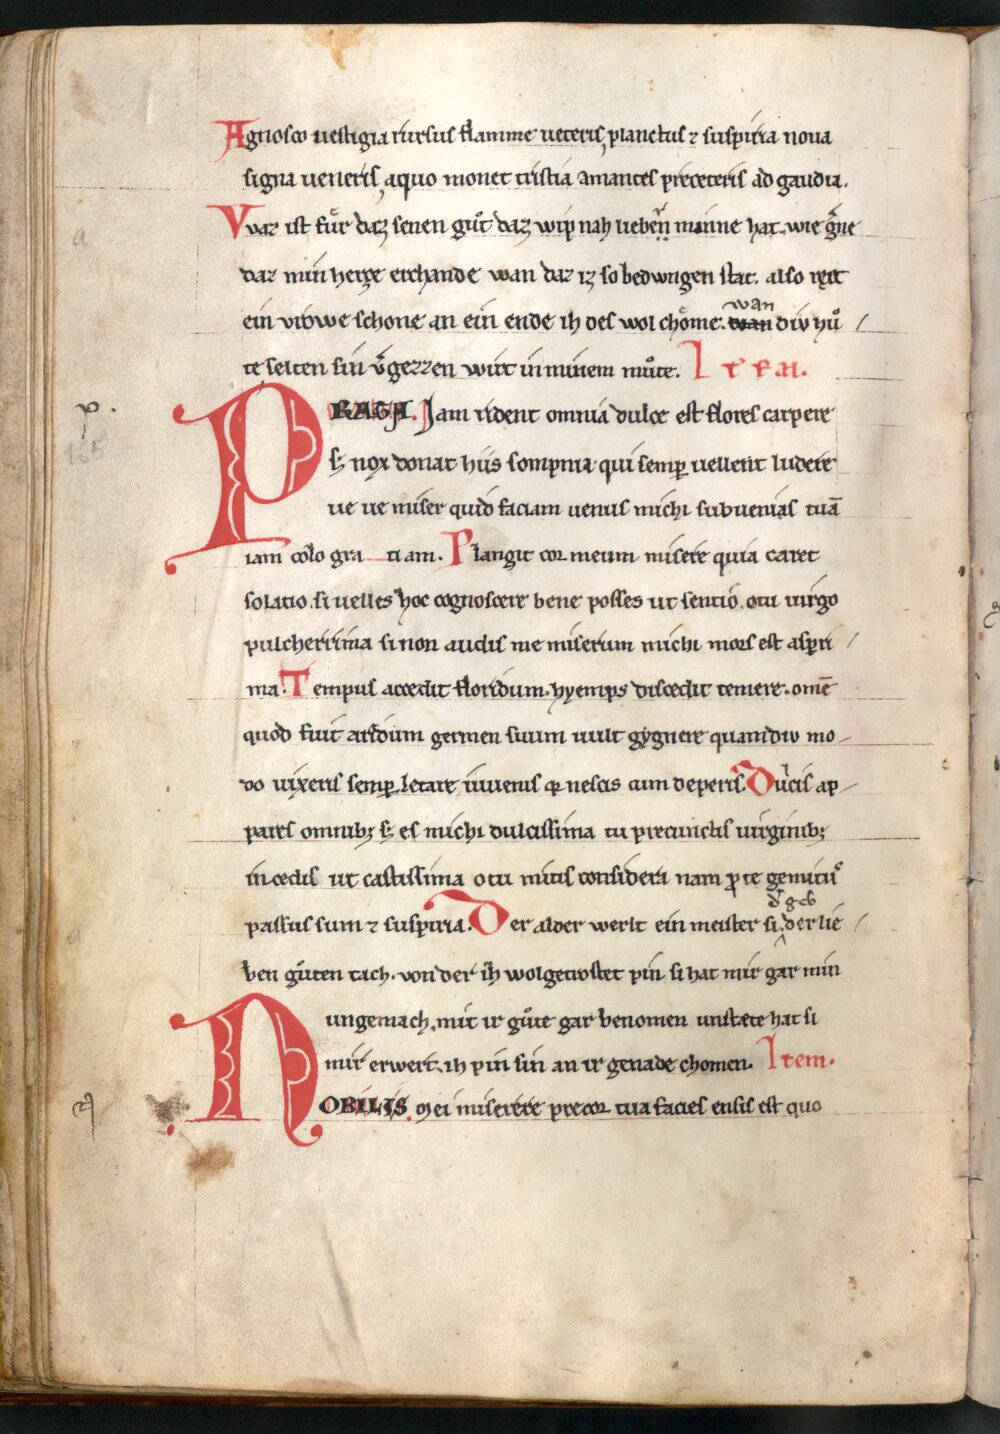 Agnosco uestigia rursus flamme ueteris, planctus ⁊ suspiria noua
signa ueneris, aquo monet tristia amantes preceteris ad gaudia.
Vvaz ist fuͤr daz senen guͦt daz wip nah liebeñ minne hat. wie g͛ne
daz min herze erchande wan daz iz so bedwngen stat. also reit
ein vrowe schone an ein ende ih des wol chome. wan wan div huͦ /
te selten sin v͛gezzen wirt in minem muͦte. Item.
PRAGA. Jam rident omnia dulce est flores carpere
sꝫ nox donat hiis sompnia qui semꝑ uellent ludere
ue ue miser quid faciam uenus michi subuenias tuā
iam colo gra tiam. Plangit cor meum misere quia caret
solatio. si uelles hoc cognoscere bene posses ut sentio. o tu uirgo
pulcherrima si non audis me miserum michi mors est aspri /
ma. Tempus accedit floridum. hyemps discedit temere. omē
quod fuit aridum germen suum uult gygnere quamdiu mo /
do uixeris semꝑ letare iuuenis qr nescis cum deperis. Dulcis ap /
pares omnibꝫ sꝫ es michi dulcissima tu precunctis uirginibꝫ
incedis ut castissima o tu mitis considera nam ꝓ te gemitus
passus sum ⁊ suspiria. Der alder werlt ein meister si, d͛ geb der lie /
ben guͤten tach. von der ih wol getrostet pin si hat mir gar min
ungemach. mit ir guͦte gar benomen unstæte hat si
mir erwert. ih pin sin an ir genade chomen. Item.
NOBILIS. mei miserere precor tua facies ensis est quo